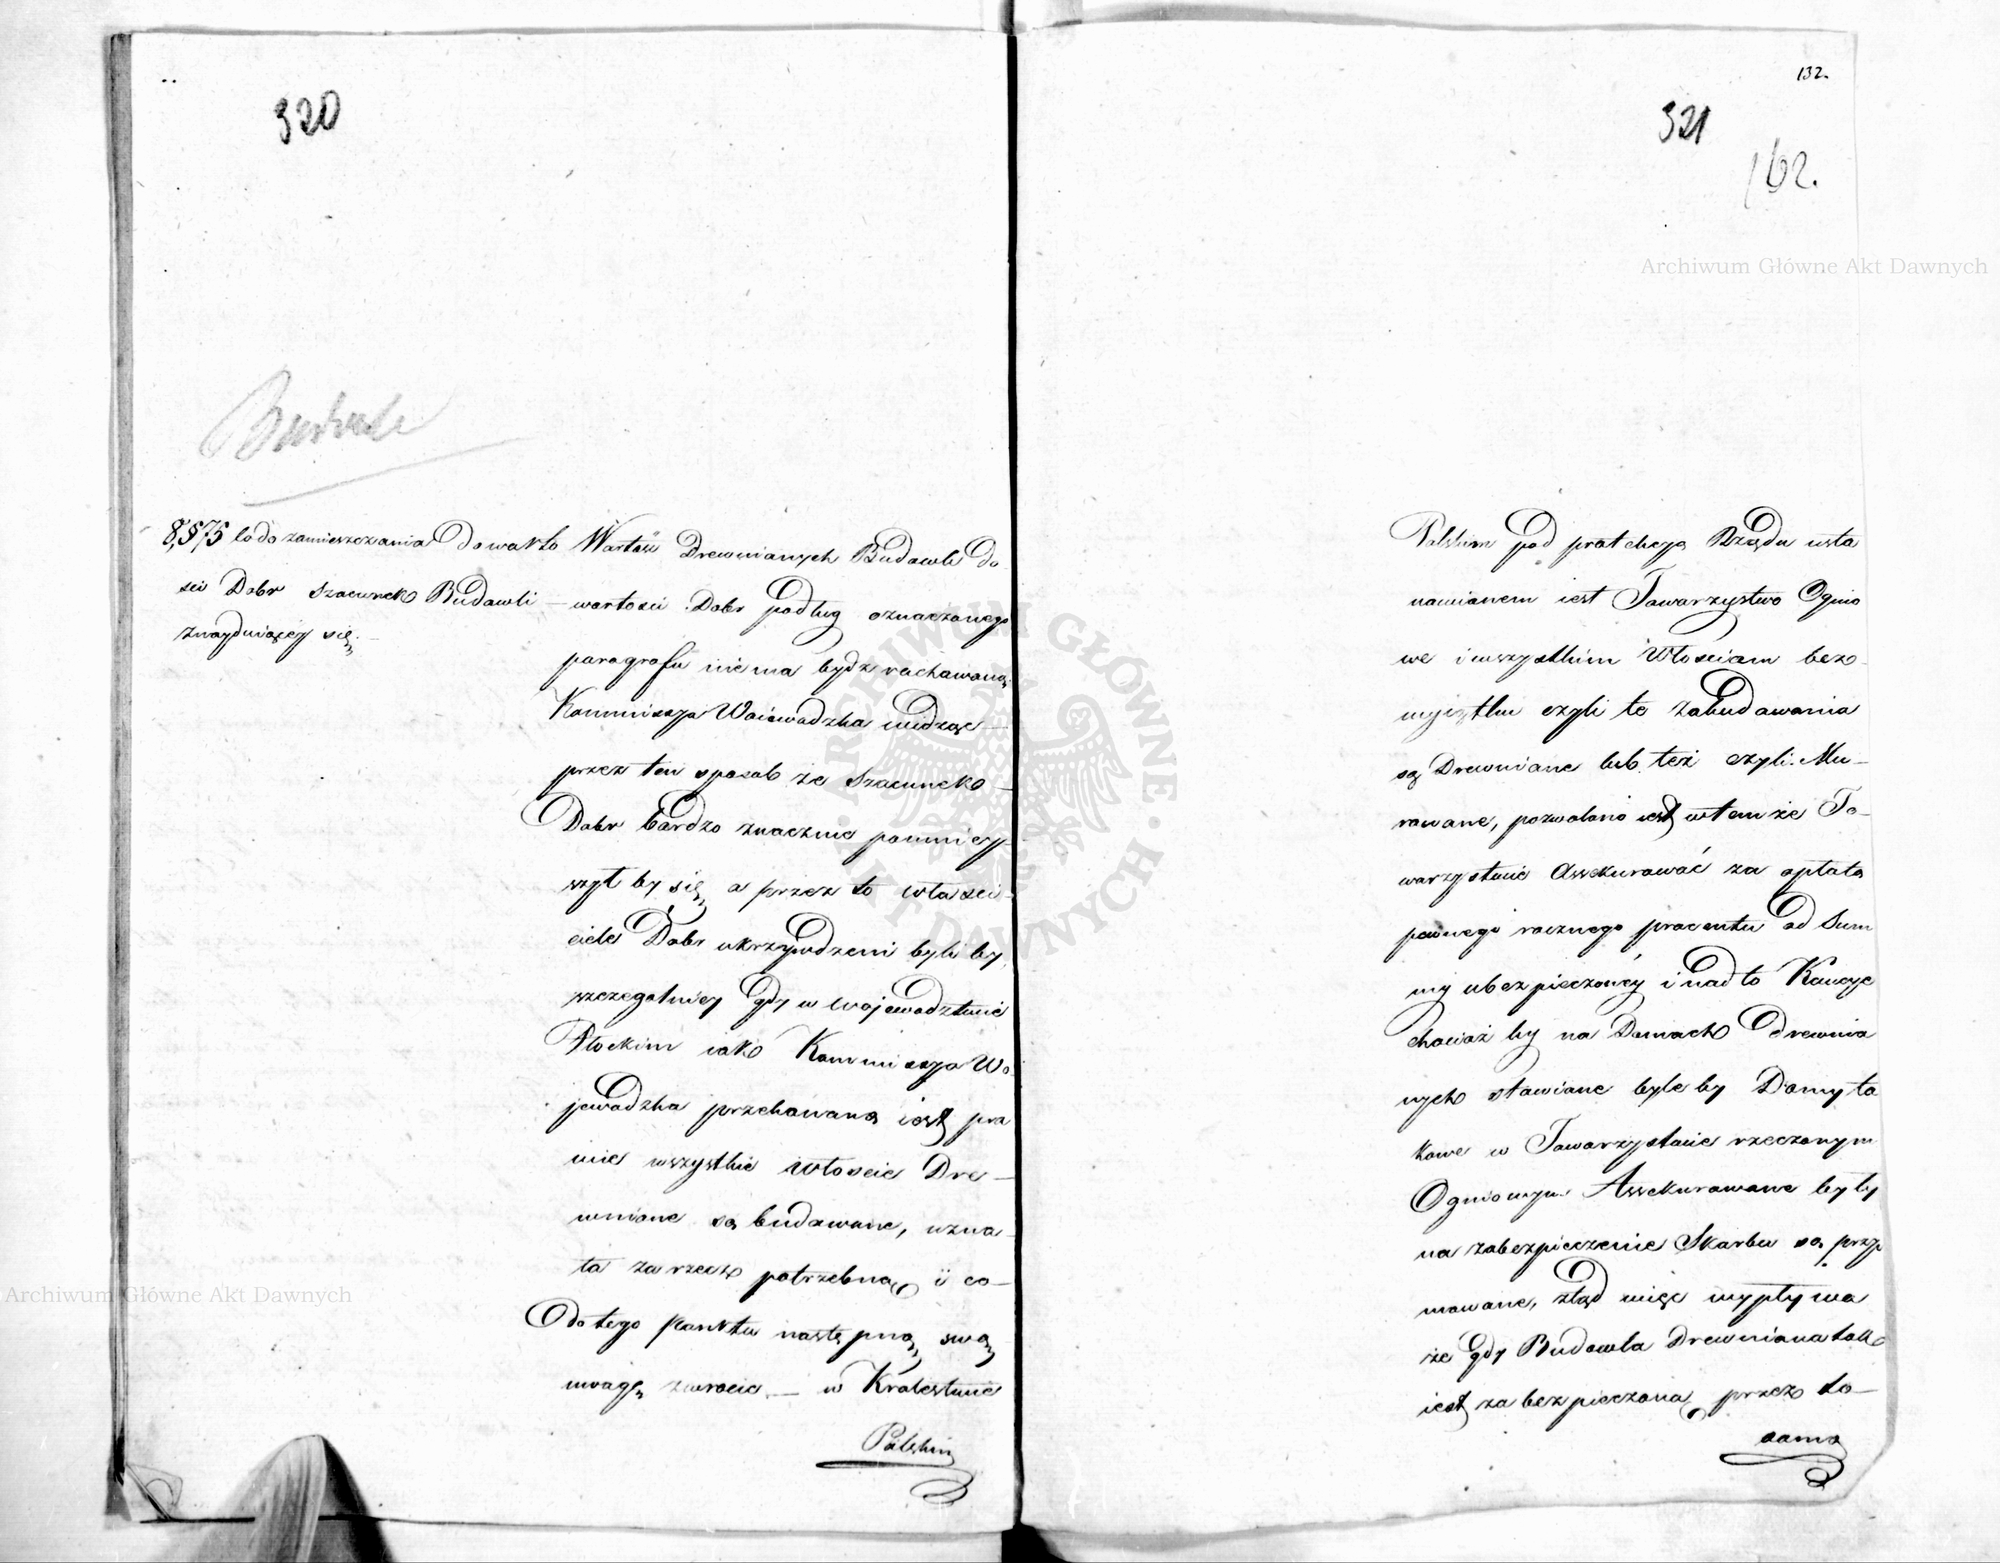 320
Budowle
8, §75 co do zamieszczania do warto
sci Dobr szacunek Budowli
znayduiącey się.
Wartość Drewnianych Budowli do
wartosci Dobr podług oznaczonego
paragrafu nie ma bydz rachowaną
Kommissya Woiewodzka widząc
przez ten sposob że szacunek
Dobr bardzo znacznie pomniey
szył by się, a przez to własci
ciele Dobr ukrzywdzeni byli by
szczegolniey gdy w wojewodztwie
Płockim iako Kommissya Wo
jewodzka przekonaną iest pra
wie wszystkie włoscie Dre
wniane są budowane, uzna
ła za rzecz potrzebną i co
do tego punktu następną swą
uwagę zwrocic — w Krolestwie
Polskim
132.
321
162.
Polskim pod protekcyą Rządu usta
nowionem iest Towarzystwo Ognio
we i wszystkim Włosciom bez
wyiątku czyli te zabudowania
są Drewniane lub też czyli Mu-
rowane, pozwolono iest w tem że To-
warzystwie Assekurować za opłatą
pewnego rocznego procentu od Sum
my ubezpieczoney i nad to Kaucye
chociaż by na Domach drewnia
nych stawiane byle by Domy ta
kowe w Towarzystwie rzeczonym
Ogniowym Assekurowane były
na zabezpieczenie Skarbu są przy
mowane, ztąd więc wypływa
że gdy Budowla Drewniana tak
iest zabezpieczona, przez to
samo
Archiwum Główne Akt Dawnych
Archiwum Główne Akt Dawnych
ARCHIWUM GŁÓWNE · AKT DAWNYCH ·